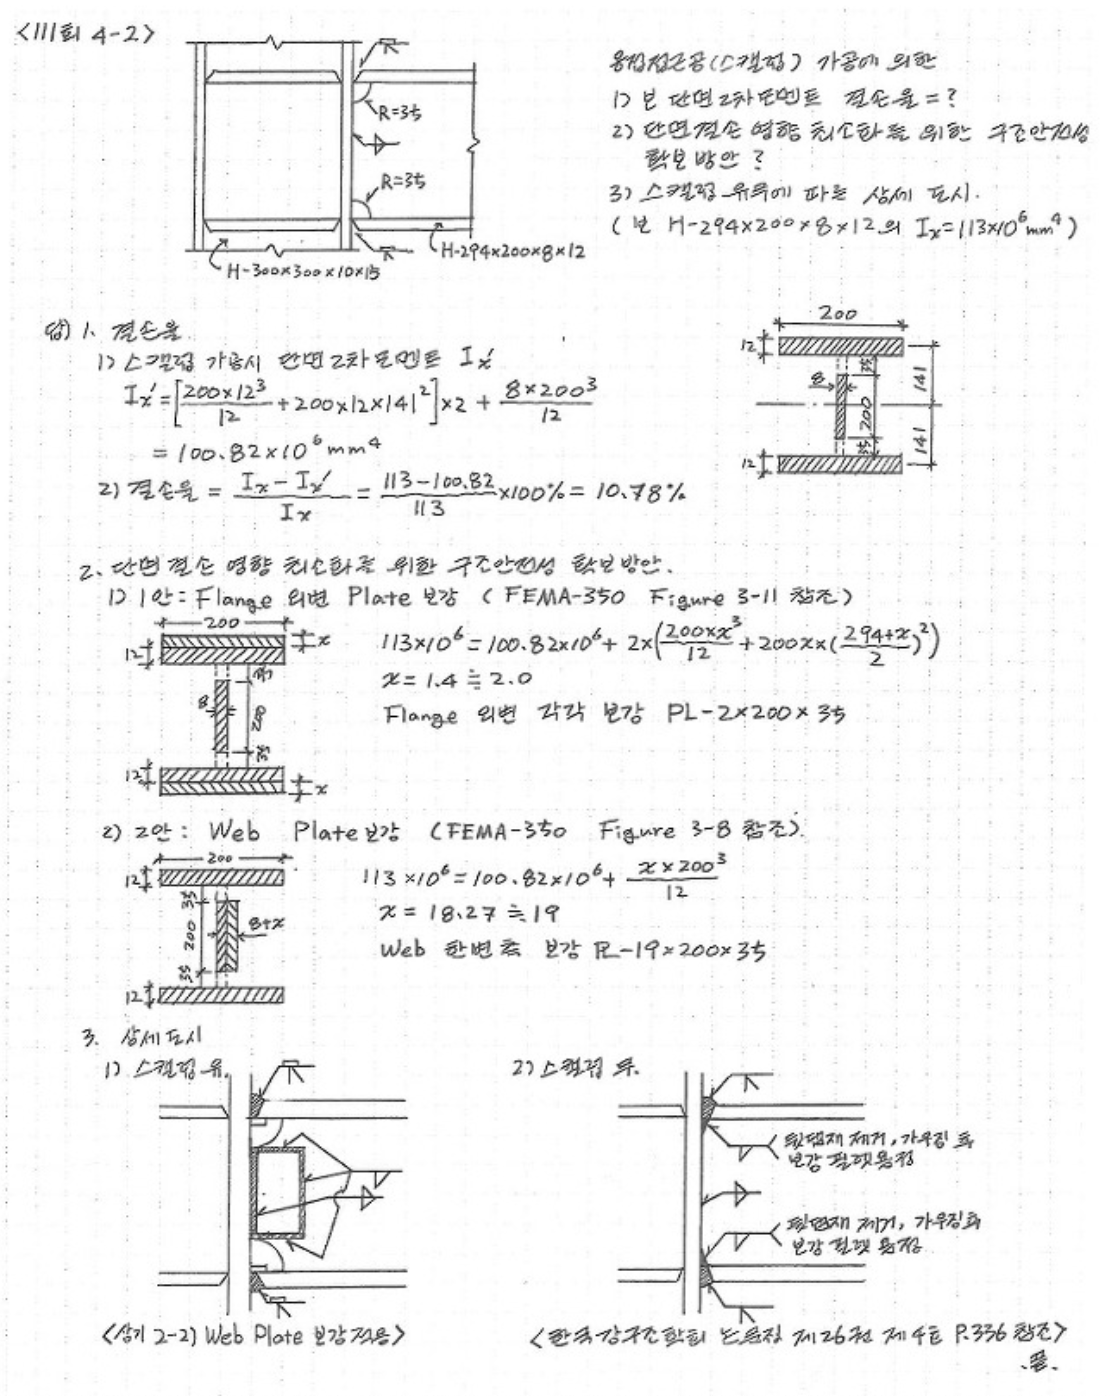 <111회 4-2>
R=35
R=35
H-294×200×8×12
H-300×300×10×15
용접접근공(스캘럽) 가공에 의한
1) 보 단면2차모멘트 결손율=?
2) 단면결손 영향 최소화를 위한 구조안전성
확보방안?
3) 스캘럽 유무에 따른 상세 도시.
(보 H-294×200×8×12의 Ix=113×10⁶mm⁴)
답) 1. 결손율
1) 스캘럽 가공시 단면2차모멘트 Ix′
Ix′=[200×12³/12 + 200×12×141²]×2 + 8×200³/12
= 100.82×10⁶mm⁴
2) 결손율 = (Ix-Ix′)/Ix = (113-100.82)/113 ×100% = 10.78%
200
12
8
35
200
35
141
141
12
2. 단면결손 영향 최소화를 위한 구조안전성 확보방안.
1) 1안: Flange 외변 Plate 보강 (FEMA-350 Figure 3-11 참조)
200
x
12
35
8
200
35
12
x
113×10⁶=100.82×10⁶+2×(200×x³/12+200x×((294+x)/2)²)
x=1.4≒2.0
Flange 외변 각각 보강 PL-2×200×35
2) 2안: Web Plate보강 (FEMA-350 Figure 3-8 참조).
200
12
35
200
8+x
35
12
113×10⁶=100.82×10⁶+ x×200³/12
x=18.27≒19
Web 한변측 보강 PL-19×200×35
3. 상세도시
1) 스캘럽 유.
2) 스캘럽 무.
뒷댐재 제거, 가우징 후
보강 필렛용접
뒷댐재 제거, 가우징후
보강 필렛 용접
<상기 2-2) Web Plate 보강적용>
<한국강구조학회 논문집 제26권 제4호 P.336 참조>
.끝.